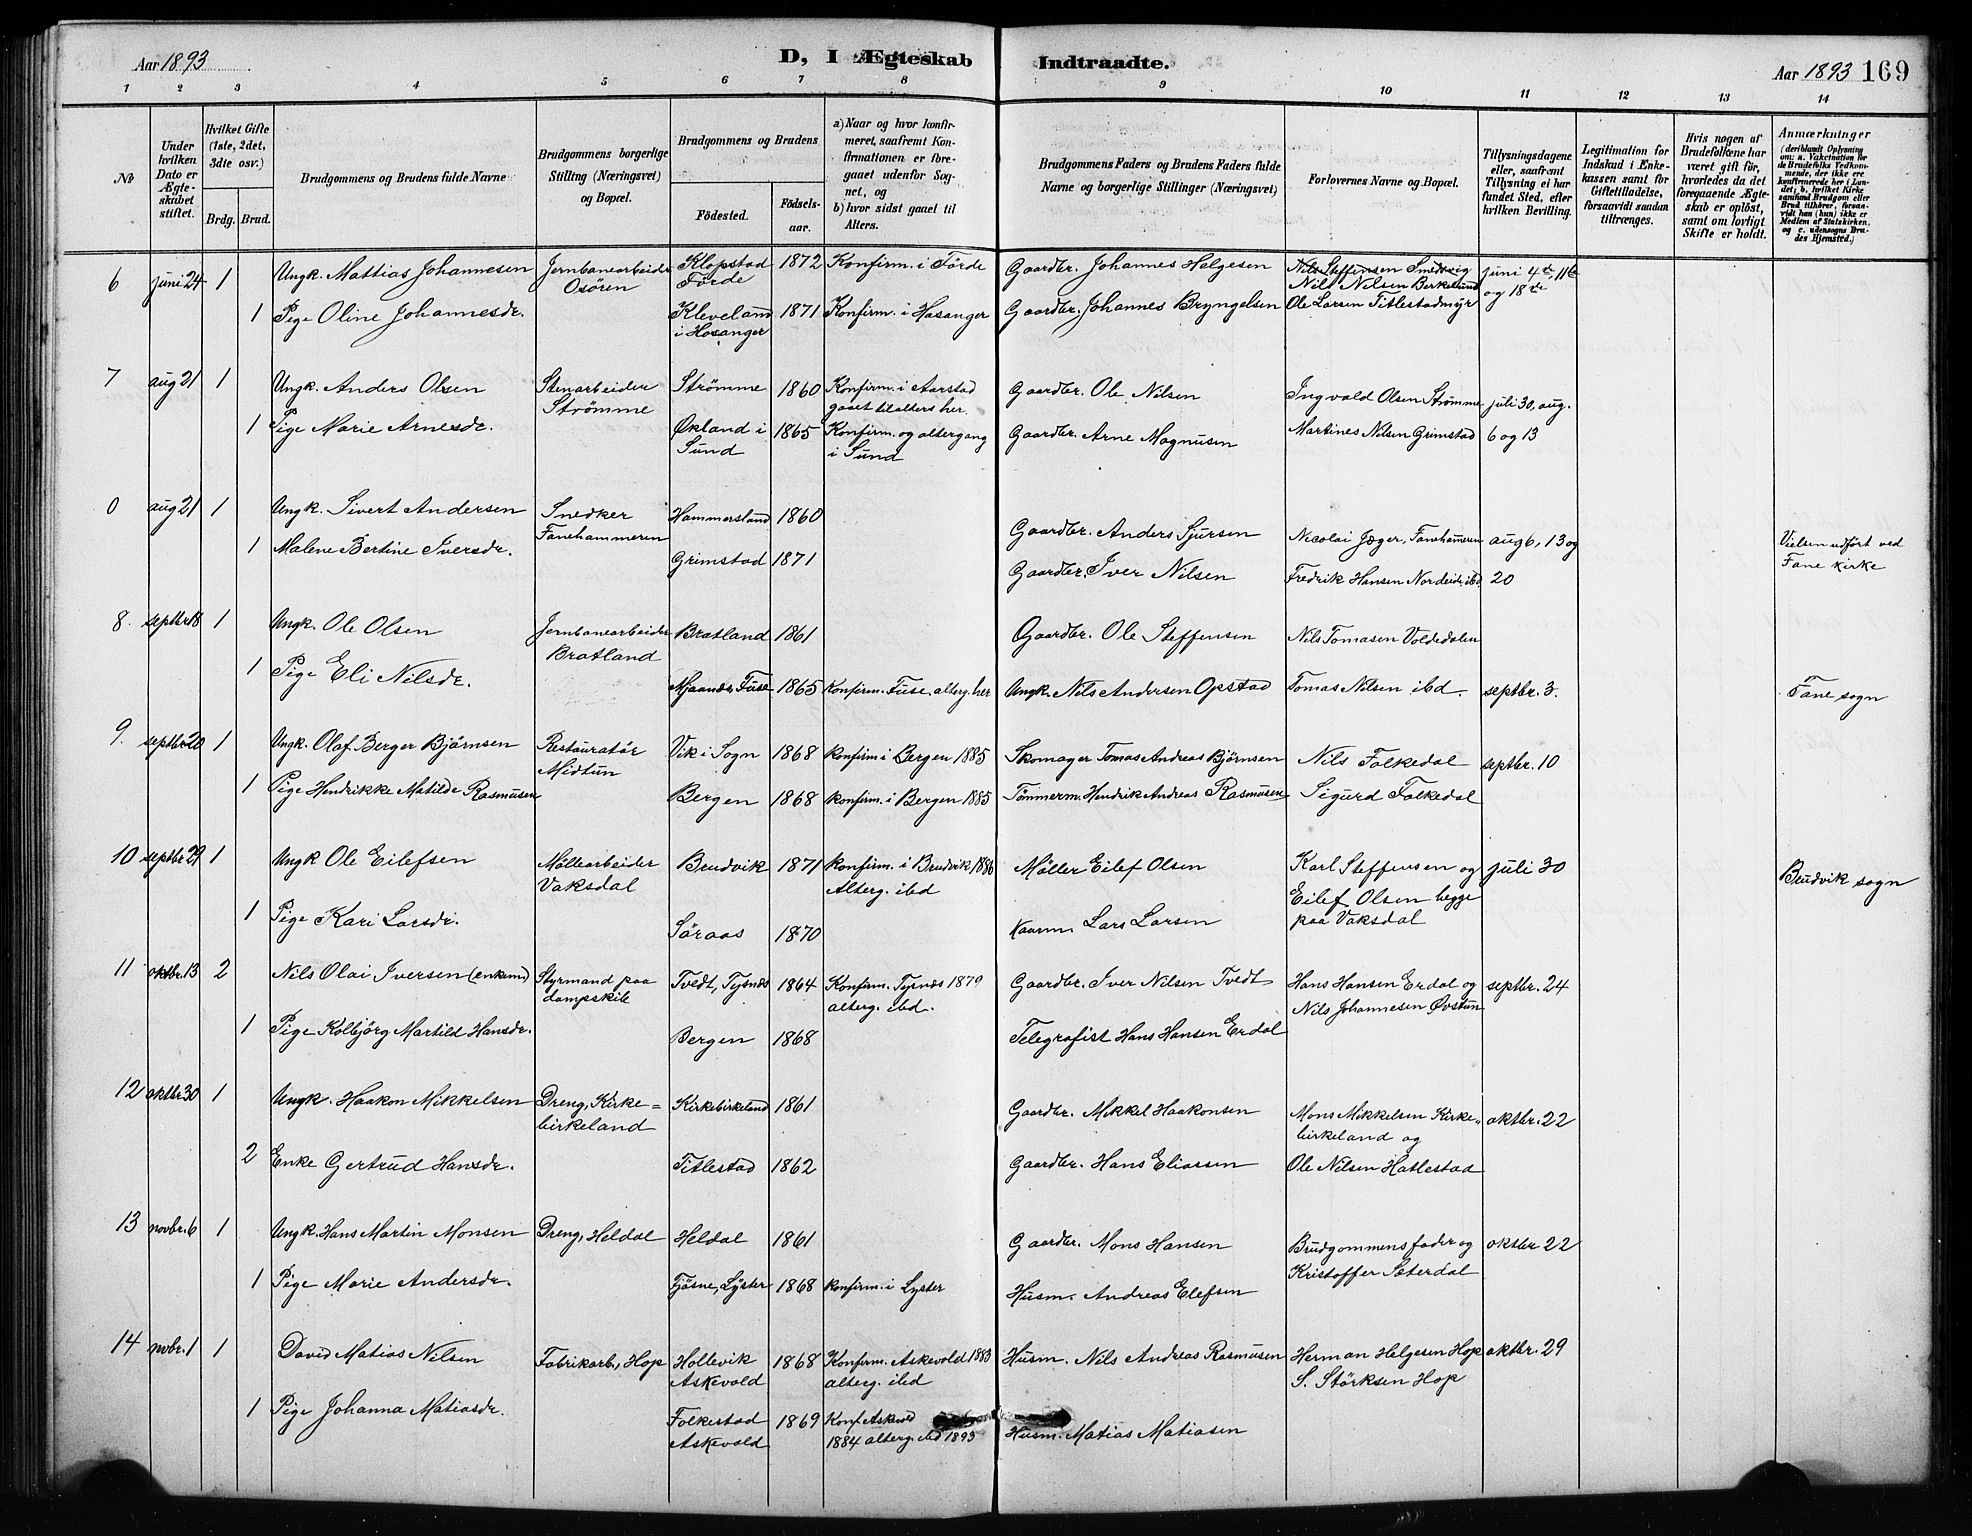 Aar 1893
D, I Ægteskab Indtraadte.
Aar 1893 169
1 2 3 4 5 6 7 8 9 10 11 12 13 14
№
Under hvilken Dato er Ægteskabet stiftet.
Hvilket Gifte (1ste, 2det, 3die osv.)
Brdg. Brud.
Brudgommens og Brudens fulde Navne
Brudgommens borgerlige Stilling (Næringsvei) og Bopæl.
Brudgommens og Brudens
Fødested.
Fødselsaar.
a) Naar og hvor konfirmeret, saafremt Konfirmationen er foregaaet udenfor Sognet, og
b) hvor sidst gaaet til Alters.
Brudgommens Faders og Brudens Faders fulde Navne og borgerlige Stillinger (Næringsvei)
Forlovernes Navne og Bopæl.
Tillysningsdagene eller, saafremt Tillysning ei har fundet Sted, efter hvilken Bevilling.
Legitimation for Indskud i Enkekassen samt for Giftetilladelse, forsaavidt saadan tiltrænges.
Hvis nogen af Brudefolkene har været gift før, hvorledes da det foregaaende Ægteskab er opløst, samt om lovligt Skifte er holdt.
Anmærkninger (deriblandt Oplysning om: a. Vakcination for de Brudefolks Vedkommende, der ikke ere konfirmerede her i Landet; b. hvilket Kirkesamfund Brudgom eller Brud tilhører, forsaavidt han (hun) ikke er Medlem af Statskirken, og c. udensogns Brudes Hjemsted.)
6 juni 24 1 Ungk. Mattias Johannesen Jernbanearbeider Osören Klopstad Förde 1872 Konfirm. i Förde Gaardbr. Johannes Helgesen Nils Steffensen Smedsvig Nils Nilsen Birkelund juni 4de, 11te og 18de
1 Pige Oline Johannesdr. Kleveland i Hosanger 1871 Konfirm. i Hosanger Gaardbr. Johannes Bryngelsen Ole Larsen Titlestadmyr
7 aug 21 1 Ungk. Anders Olsen Stenarbeider Strömme Strömme 1860 Konfirm. i Aarstad gaaet til alters her. Gaardbr. Ole Nilsen Ingvald Olsen Strömme juli 30, aug.
1 Pige Marie Arnesdr. Økland i Sund 1865 Konfirm. og altergang i Sund Gaardbr. Arne Magnusen Martines Nilsen Grimstad 6 og 13
0 aug 21 1 Ungk. Sivert Andersen Snedker Fanehammeren Hammersland 1860 Gaardbr. Anders Sjursen Nicolai Jæger, Fanehameren aug 6, 13 og Vielsen udfört ved Fane kirke
1 Malene Bertine Iversdr. Grimstad 1871 Gaardbr. Iver Nilsen Fredrik Hansen Nordeide, ibd 20
8. septbr. 18 1 Ungk. Ole Olsen Jernbanearbeider Bratland Bratland 1861 Gaardbr. Ole Steffensen Nils Tomasen Voldedalen
1 Pige Eli Nilsdr. Mjaanes, Fuse 1865 Konfirm. Fuse, alterg. her Ungk. Nils Andersen Opstad Tomas Nilsen ibd. septbr. 3. Fane sogn
9. septbr. 20 1 Ungk. Olaf Berger Björnsen Restauratör Midtun Vik i Sogn 1868 konfirm i Bergen 1885 Skomager Tomas Andreas Björnsen Nils Folkedal septbr. 10
1 Pige Hendrikke Matilde Rasmusen Bergen 1868 konfirm. i Bergen 1885 Tömmerm. Hendrik Andreas Rasmusen Sigurd Folkedal
10 septbr 29 1 Ungk Ole Eilefsen Möllearbeider Vaksdal Brudvik 1871 konfirm. i Brudvik 1886 Alterg. ibd Möller Eilef Olsen Karl Steffensen og juli 30 Brudvik sogn
1 Pige Kari Larsdr. Söraas 1870 Kaarm. Lars Larsen Eilef Olsen begge paa Vaksdal
11 oktbr. 13 2 Nils Olai Iversen (enkemd) Styrmand paa dampskib Tvedt, Tysnæs 1864 Konfirm. Tysnæs 1879 alterg. ibd. Gaardbr. Iver Nilsen Tvedt Hans Hansen Erdal og Nils Johannesen Övstun septbr. 24
1 Pige Kolbjörg Martild Hansdr. Bergen 1868 Telegrafist Hans Hansen Erdal
12 oktbr. 30 1 Ungk. Haakon Mikkelsen Dreng, Kirkebirkeland Kirkebirkeland 1861 Gaardbr. Mikkel Haakonsen Mons Mikkelsen Kirkebirkeland og oktbr. 22
2 Enke Gertrud Hansdr. Titlestad 1862 Gaardbr. Hans Eliassen Ole Nilsen Hatlestad
13 novbr. 6 1 Ungk. Hans Martin Monsen Dreng, Heldal Heldal 1861 Gaardbr. Mons Hansen Brudgommens fader og oktbr 22
1 Pige Marie Andersdr. Fjösne, Lyster 1868 konfirm. i Lyster Husm. Andreas Elefsen Kristoffer Sæterdal
14 novbr. 1 1 David Matias Nilsen Fabrikarb., Hop Hollevik Askevold 1868 Konfirm. Askevold 1883 alterg. ibd Husm. Nils Andreas Rasmusen Herman Helgesen Hop S. Störksen Hop oktbr. 29
1 Pige Johanna Matiasdr. Folkestad Askevold 1869 Konf. Askvold 1884 alterg. ibd 1893 Husm. Matias Matiasen